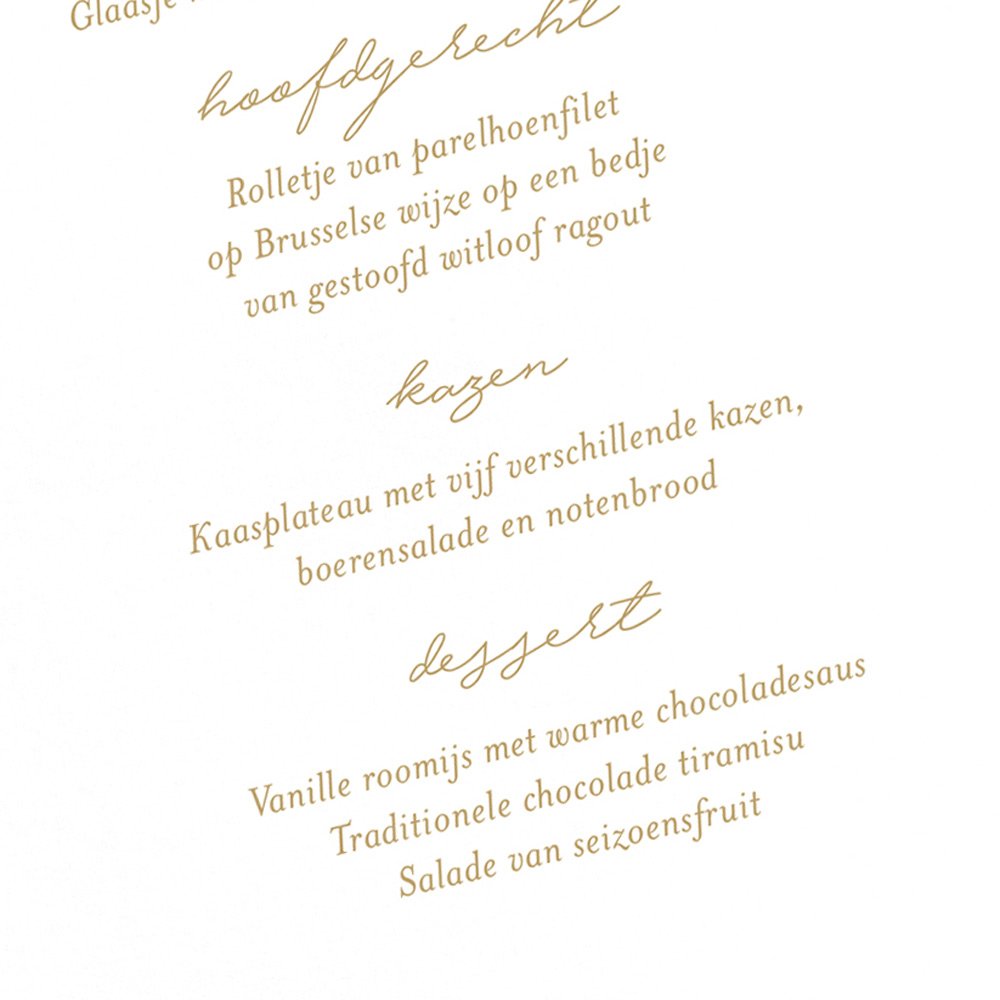 Glaasje
hoofdgerecht
Rolletje van parelhoenfilet
op Brusselse wijze op een bedje
van gestoofd witloof ragout
kazen
Kaasplateau met vijf verschillende kazen,
boerensalade en notenbrood
dessert
Vanille roomijs met warme chocoladesaus
Traditionele chocolade tiramisu
Salade van seizoensfruit